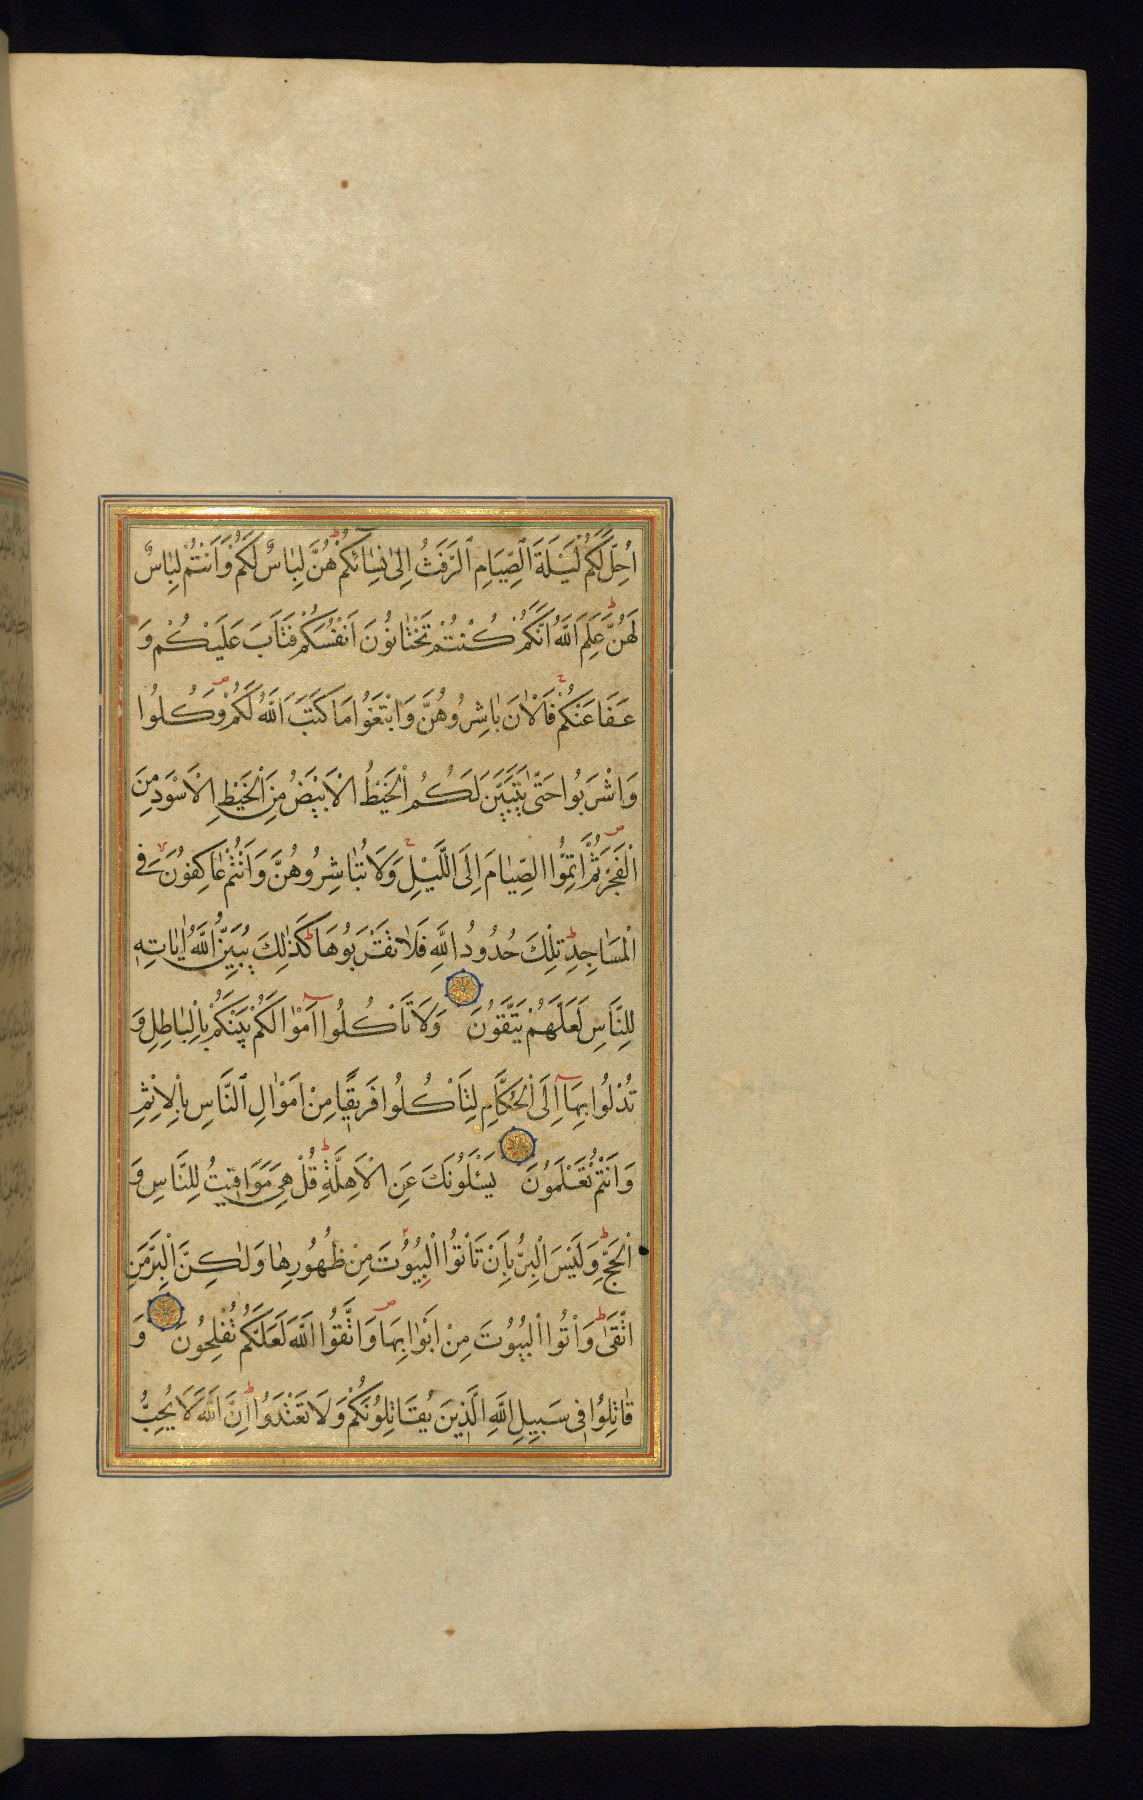 اُحِلَّ لَكُمْ لَيْلَةَ الصِّيَامِ الرَّفَثُ اِلٰى نِسَٓائِكُمْ هُنَّ لِبَاسٌ لَكُمْ وَاَنْتُمْ لِبَاسٌ
لَهُنَّ عَلِمَ اللّٰهُ اَنَّكُمْ كُنْتُمْ تَخْتَانُونَ اَنْفُسَكُمْ فَتَابَ عَلَيْكُمْ وَ
عَفَا عَنْكُمْ فَالْاٰنَ بَاشِرُوهُنَّ وَابْتَغُوا مَا كَتَبَ اللّٰهُ لَكُمْ وَكُلُوا
وَاشْرَبُوا حَتّٰى يَتَبَيَّنَ لَكُمُ الْخَيْطُ الْاَبْيَضُ مِنَ الْخَيْطِ الْاَسْوَدِ مِنَ
الْفَجْرِ ثُمَّ اَتِمُّوا الصِّيَامَ اِلَى الَّيْلِ وَلَا تُبَاشِرُوهُنَّ وَاَنْتُمْ عَاكِفُونَ فِى
الْمَسَاجِدِ تِلْكَ حُدُودُ اللّٰهِ فَلَا تَقْرَبُوهَا كَذٰلِكَ يُبَيِّنُ اللّٰهُ اٰيَاتِهٖ
لِلنَّاسِ لَعَلَّهُمْ يَتَّقُونَ وَلَا تَاْكُلُٓوا اَمْوَالَكُمْ بَيْنَكُمْ بِالْبَاطِلِ وَ
تُدْلُوا بِهَٓا اِلَى الْحُكَّامِ لِتَاْكُلُوا فَرِيقًا مِنْ اَمْوَالِ النَّاسِ بِالْاِثْمِ
وَاَنْتُمْ تَعْلَمُونَ يَسْئَلُونَكَ عَنِ الْاَهِلَّةِ قُلْ هِىَ مَوَاقِيتُ لِلنَّاسِ وَ
الْحَجِّ وَلَيْسَ الْبِرُّ بِاَنْ تَاْتُوا الْبُيُوتَ مِنْ ظُهُورِهَا وَلٰكِنَّ الْبِرَّ مَنِ
اتَّقٰى وَاْتُوا الْبُيُوتَ مِنْ اَبْوَابِهَا وَاتَّقُوا اللّٰهَ لَعَلَّكُمْ تُفْلِحُونَ وَ
قَاتِلُوا فِى سَبِيلِ اللّٰهِ الَّذِينَ يُقَاتِلُونَكُمْ وَلَا تَعْتَدُوا اِنَّ اللّٰهَ لَا يُحِبُّ